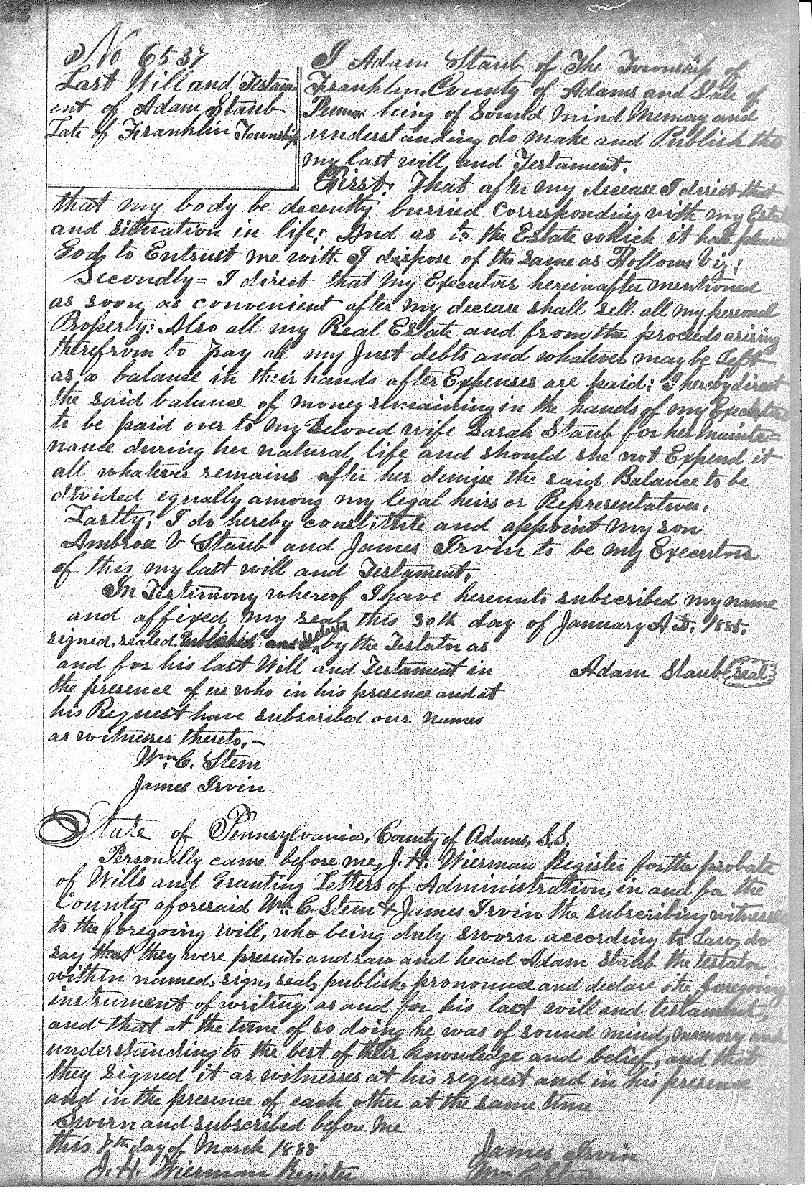 No 6537
Last Will and Testam
ent of Adam Staub
Late of Franklin Township
I Adam Staub of The Township of
Franklin, County of Adams and State of
Penna being of Sound mind Memory and
understanding do make and Publish this
my last will and Testament.
First, That after my decease I direct that
that my body be decently burried corresponding with my Estate
and situation in life; And as to the Estate which it hath pleased
God to Entrust me with I dispose of the same as Follows viz;
Secondly = I direct that my Executors hereinafter mentioned
as soon as convenient after my decease shall sell all my personal
Property; Also all my Real Estate and from the proceeds arising
therefrom to pay all my Just debts and whatever may be left
as a balance in their hands after Expenses are paid; I hereby direct
the said balance of money remaining in the hands of my Executors
to be paid over to my beloved wife Sarah Staub for her mainte=
nance during her natural life and should she not Expend it
all whatever remains after her demise the said Balance to be
divided equally among my legal heirs or Representatives.
Lastly, I do hereby constitute and appoint my son
Ambrose V Staub and James Irvin to be my Executors
of this my last will and Testament.
In Testimony whereof I have hereunto subscribed my name
and affixed my seal this 30th day of January A.D. 1885.
signed, sealed, published and by the Testator as
and for his last Will and Testament in
the presence of us who in his presence and at
his Request have subscribed our names
as witnesses thereto.—
Adam Staub seal
Wm C. Stem
James Irvin
State of Pennsylvania, County of Adams, S.S.
Personally came before me, J. H. Wierman Register for the probate
of Wills and Granting Letters of Administration, in and for the
County aforesaid Wm C. Stem & James Irvin the subscribing witnesses
to the foregoing will, who being duly sworn according to Law, do
say that they were present and saw and heard Adam Staub the testator
within named, sign, seal, publish, pronounce and declare the foregoing
instrument of writing as and for his last will and testament,
and that at the time of so doing he was of sound mind, memory and
understanding to the best of their knowledge and belief, and that
they signed it as witnesses at his request and in his presence
and in the presence of each other at the same time
Sworn and subscribed before me
this 7th day of March 1888
J. H. Wierman Register
James Irvin
Wm C. Stem